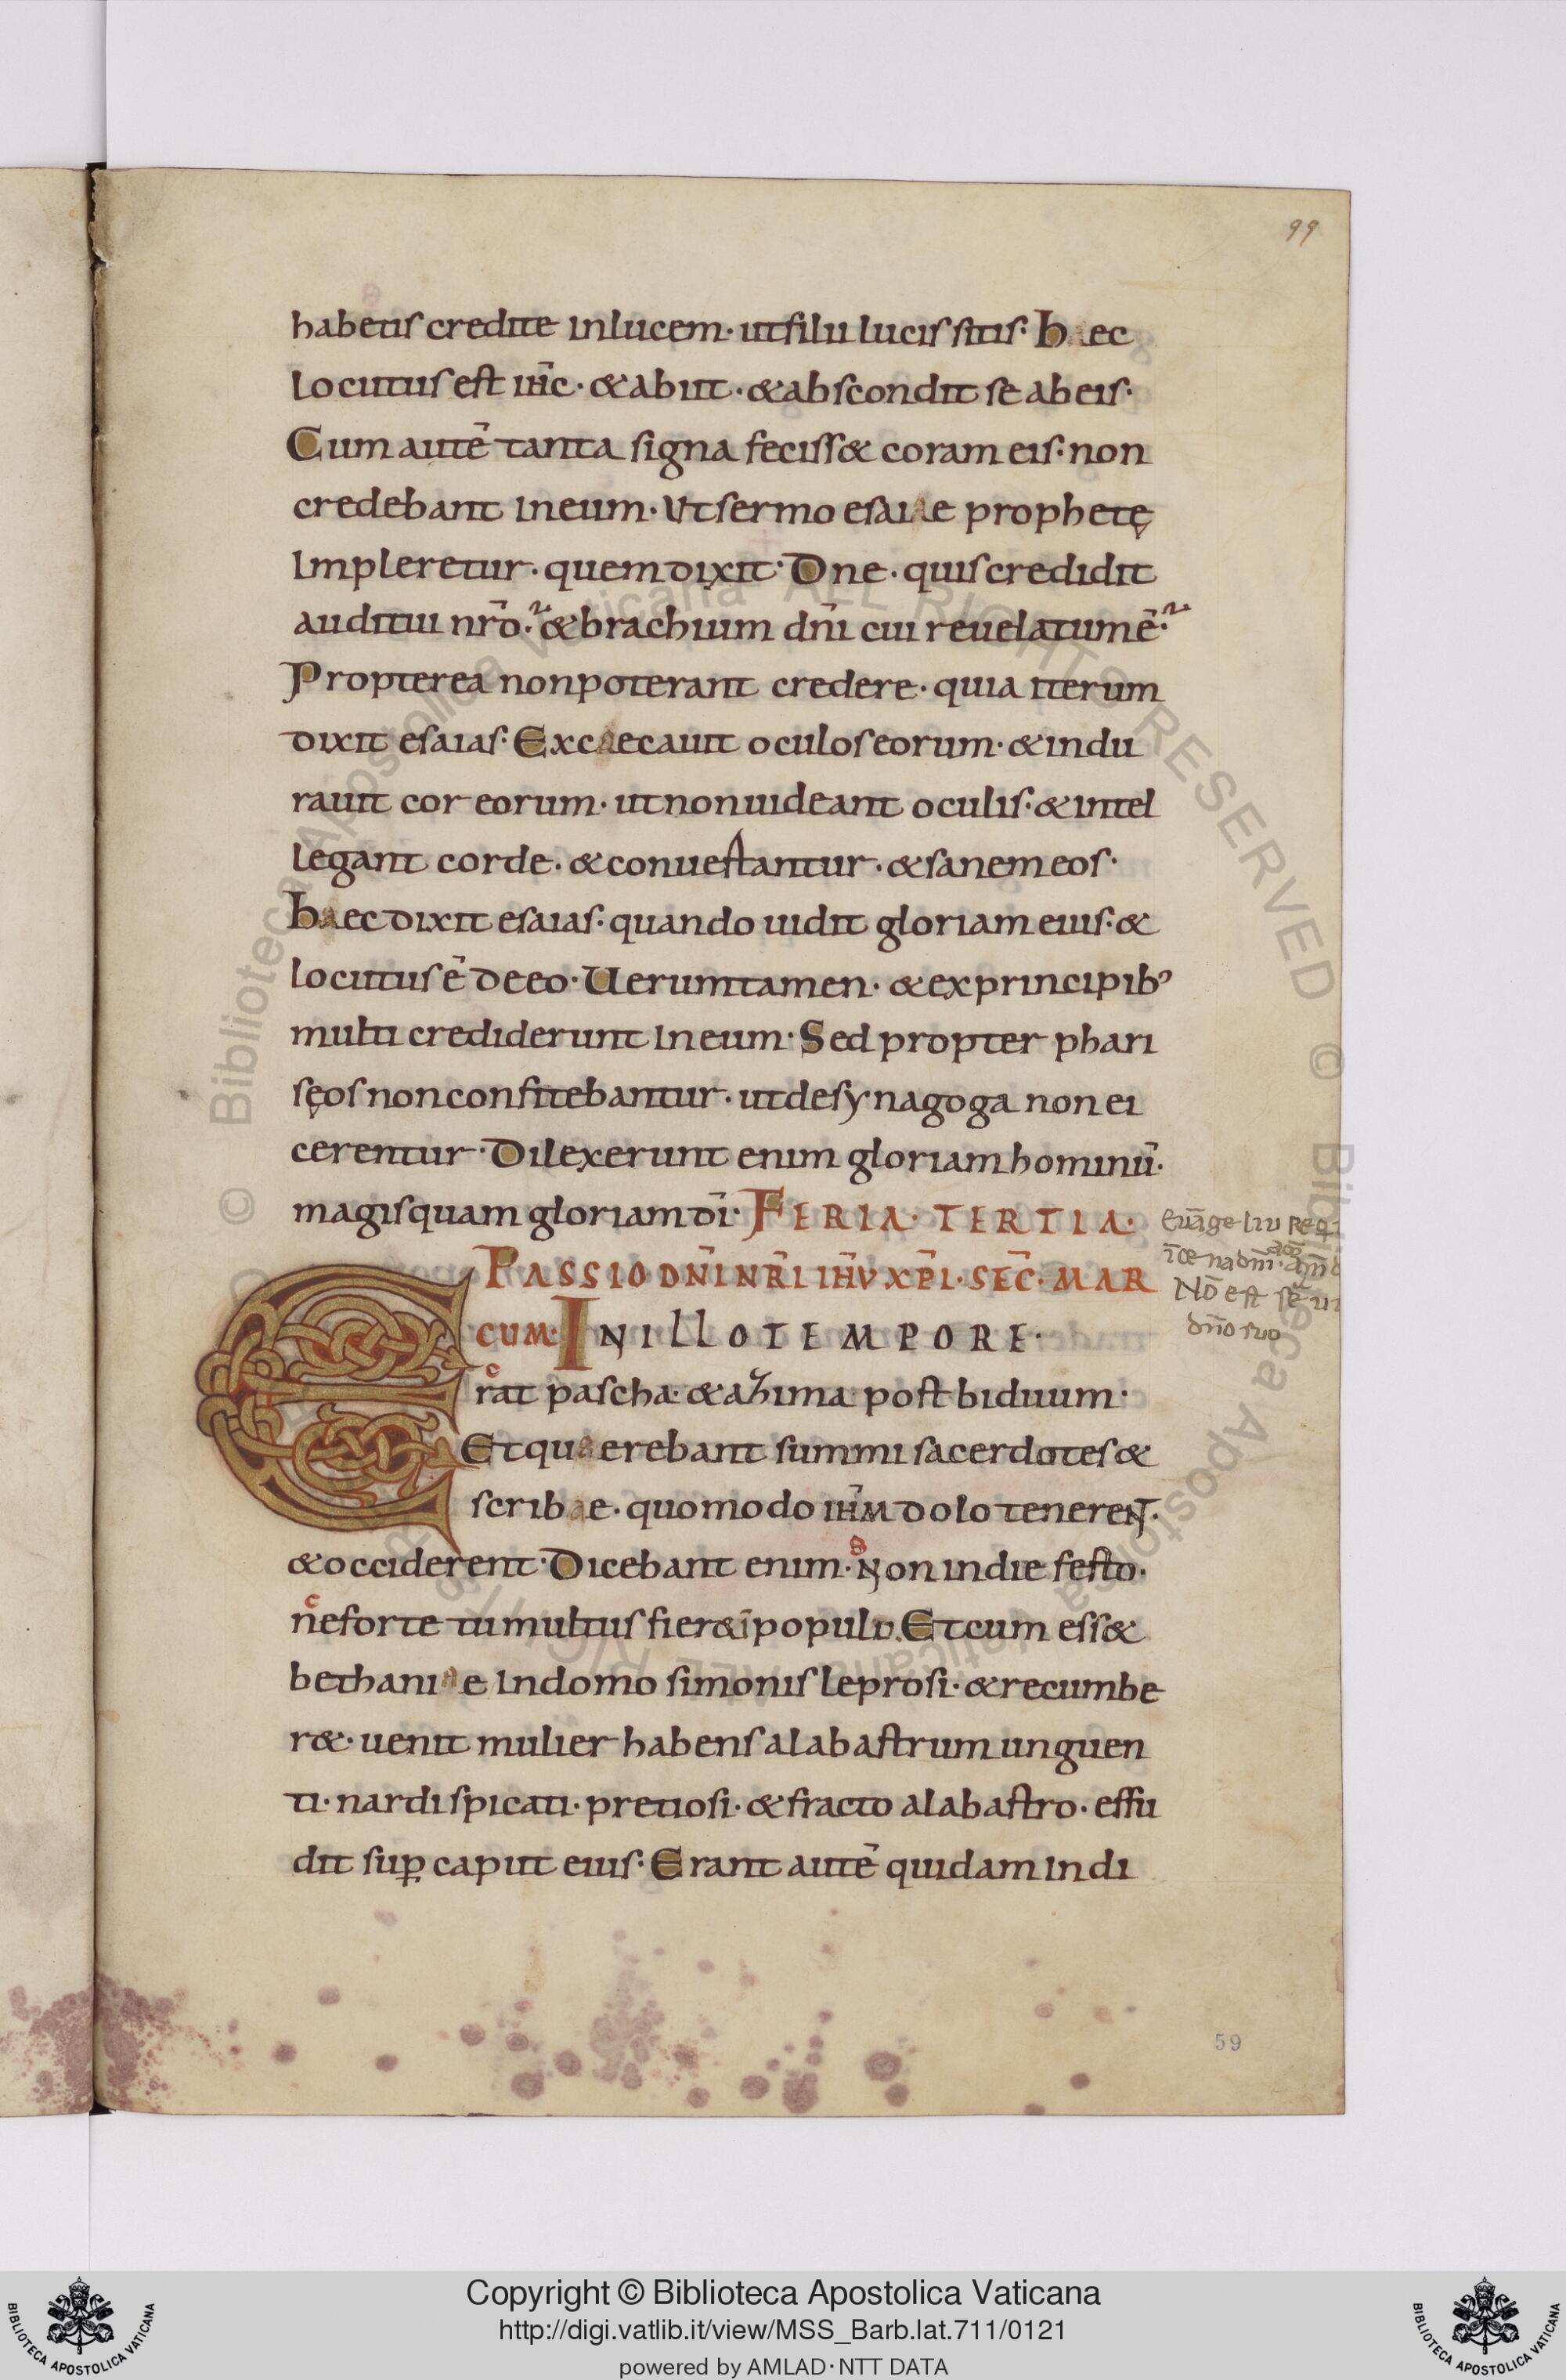 99
habetis credite inlucem· utfilii lucis sitis· Haec
locutus est ihc̄· &abiit· &abscondit se abeis·
Cum autē tanta signa feciss& coram eis· non
credebant ineum· Vt sermo esaiae prophetę
impleretur· quem dixit· Dne· quis credidit
auditui nr̄o· &brachium dn̄i cui reuelatum ē·
Propterea non poterant credere· quia iterum
dixit esaias· Excaecauit oculos eorum· &indu
rauit cor eorum· ut non uideant oculis· &intel
legant corde· &conuertantur· &sanem eos·
Haec dixit esaias· quando uidit gloriam eius· &
locutus ē deeo· Uerumtamen· &exprincipib᾽
multi crediderunt ineum· Sed propter phari
sęos non confitebantur· ut desynagoga non ei
cerentur· Dilexerunt enim gloriam hominū·
magis quam gloriam dī· FERIA· TERTIA·
PASSIO DN̄I NR̄I IHV̄ XP̄I· SEC̄· MAR
CUM· IN ILLO TEMPORE·
Erat pascha· &azima· post biduum·
Et quaerebant summi sacerdotes &
scribae· quomodo ihm̄ dolo tenerent·
&occiderent· Dicebant enim· Non indie festo·
neforte tumultus fier& ī populo. Et cum ess&
bethaniae indomo simonis leprosi· &recumbe
r&· uenit mulier habens alabastrum unguen
ti· nardi spicati· pretiosi· &fracto alabastro· effu
dit suꝑ caput eius· Erant autē quidam indi
Nō est
dn̄o suo
59
© Biblioteca Apostolica Vaticana ALL RIGHTS RESERVED
Copyright © Biblioteca Apostolica Vaticana
http://digi.vatlib.it/view/MSS_Barb.lat.711/0121
powered by AMLAD·NTT DATA
BIBLIOTECA APOSTOLICA VATICANA
BIBLIOTECA APOSTOLICA VATICANA